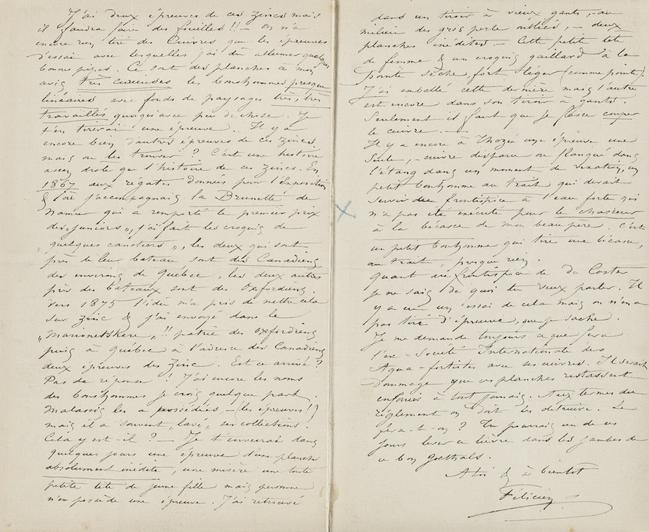 J'ai deux épreuves de ces zincs mais
il faudra faire des fouilles !! — On n'a
encore rien tiré des Cuivres que les épreuves
d'essai avec lesquelles j'ai dû allumer quelque
bonne pipe. Ce sont des planches à mon
avis très curieuses les bonshommes presque
linéaires avec fonds de paysages très, très
travaillés quoique avec peu de chose. J
t'en tirerai une épreuve. Il y a
encore bien d'autres épreuves de ces zincs
mais où les trouver ? C'est une histoire
assez drole que l'histoire de ces zincs. En
1867 aux régates données pour l'Exposition
j'accompagnais la Brunette de
Namur qui a remporté le premier prix
des juniors, j'ai fait les croquis de
„quelques canotiers", les deux qui sont
près de leur bateau sont des Canadiens
des environs de Quebec, les deux autres
près des bateaux sont des Oxfordiens
Vers 1875 l'idée m'a pris de mettre cela
sur zinc & j'ai envoyé dans le
!! patrie des oxfordiens
puis à Quebec à l'adresse des Canadiens
deux épreuves des Zinc. Est ce arrivé ?
Pas de réponse ! J'ai encore les noms
des bonshommes je crois quelque part.
Malassis les a possédées — les épreuves !?
mais il a souvent „lavé" ses collections.
Cela y est-il ? — Je t'enverrai dans
quelques jours une épreuve d'une planche
absolument inédite, une misère une toute
petite tête de jeune fille mais personne
n'en possède une épreuve. J'ai retrouvé
dans un tiroir à vieux gants, au
milieu des gros porte mêlés, — deux
planches inédites — Cette petite tête
de femme & un croquis gaillard à la
pointe sèche fort léger (comme pointe).
J'ai emballé cette dernière mais l'autre
est encore dans son tiroir à gants.
Seulement il faut que je fasse couper
le cuivre. —
Il y a encore à Thozée une épreuve une
Seule, — cuivre disparu ou flanqué dans
l'étang dans un moment de vexation, un
petit bonhomme au trait qui devait
servir de frontispice à l'eau forte qui
n'a pas été exécutée pour le chasseur
à la bécasse de mon beau père. C'est
un petit bonhomme qui tire une bécasse,
au trait, presque rien.
Quant au frontispice de De Coster
je ne sais de quoi tu veux parler. Il
y a eu un essai de cela mais on n'en a
pas tiré d'épreuve, que je sache.
Je me demande toujours ce que fera
l'ex-Société Internationale des
Aqua-fortistes avec ses cuivres. Il serait
dommage que ces planches restassent
enfouies à tout jamais. Aux termes du
règlement on doit les détruire. Le
fe-a-t-on ? Tu pourrais un de ces
jours lever ce lièvre dans les jambes de
ce bon Goethals.
A toi & à bientot
Félicien